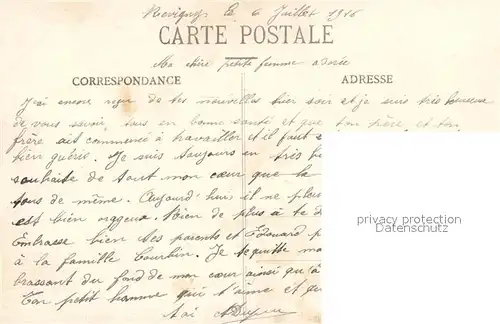 Revigny le 6 Juillet 1916
CARTE POSTALE
Ma chère petite femme adorée
CORRESPONDANCE
ADRESSE
J'ai encore reçu de tes nouvelles hier soir et je suis très heureux
de vous savoir tous en bonne santé et que ton père et ton
frère ait commencé à travailler et il faut
bien guéris. Je suis toujours en très
souhaite de tout mon cœur que la
tous de même. Aujourd'hui il ne pleu
est bien Rien de plus à te d
Embrasse bien tes parents et Édouard p
à la famille Tourbin. Je te quitte ma
brassant du fond de mon cœur ainsi qu'à
Ton petit homme qui t'aime et
toi
privacy protection
Datenschutz